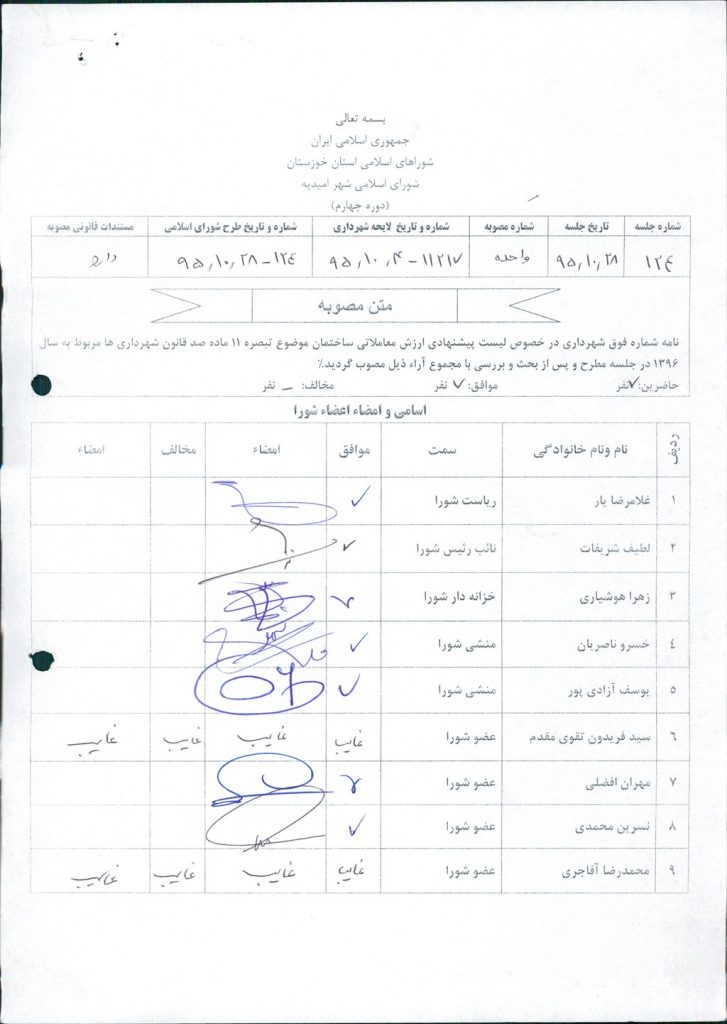 بسمه تعالی
جمهوری اسلامی ایران
شوراهای اسلامی استان خوزستان
شورای اسلامی شهر امیدیه
(دوره چهارم)
شماره جلسه تاریخ جلسه شماره مصوبه شماره و تاریخ لایحه شهرداری شماره و تاریخ طرح شورای اسلامی مستندات قانونی مصوبه
۱۲۴ ۹۵,۱۰,۲۸ واحده ۱۱۲۱۷ - ۹۵,۱۰,۴ ۱۲۴ - ۹۵,۱۰,۲۸ دارد
متن مصوبه
نامه شماره فوق شهرداری در خصوص لیست پیشنهادی ارزش معاملاتی ساختمان موضوع تبصره ۱۱ ماده صد قانون شهرداری ها مربوط به سال
۱۳۹۶ در جلسه مطرح و پس از بحث و بررسی با مجموع آراء ذیل مصوب گردید٪
حاضرین: ۷ نفر موافق: ۷ نفر مخالف: - نفر
اسامی و امضاء اعضاء شورا
ردیف نام ونام خانوادگی سمت موافق امضاء مخالف امضاء
۱ غلامرضا یار ریاست شورا ✓
۲ لطیف شریفات نائب رئیس شورا ✓
۳ زهرا هوشیاری خزانه دار شورا ✓
۴ خسرو ناصریان منشی شورا ✓
۵ یوسف آزادی پور منشی شورا ✓
۶ سید فریدون تقوی مقدم عضو شورا غایب غایب غایب غایب
۷ مهران افضلی عضو شورا ✓
۸ نسرین محمدی عضو شورا ✓
۹ محمدرضا آقاجری عضو شورا غایب غایب غایب غایب